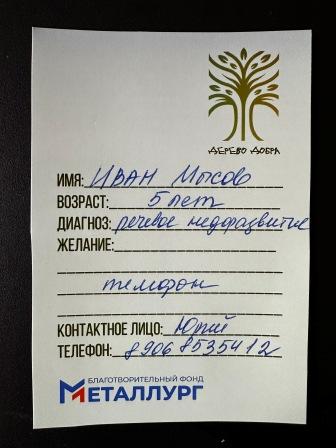 ДЕРЕВО ДОБРА
ИМЯ: ИВАН Мысов
ВОЗРАСТ: 5 лет
ДИАГНОЗ: речевое недоразвитие
ЖЕЛАНИЕ:
телефон
КОНТАКТНОЕ ЛИЦО: Юрий
ТЕЛЕФОН: 89068535412
БЛАГОТВОРИТЕЛЬНЫЙ ФОНД
МЕТАЛЛУРГ